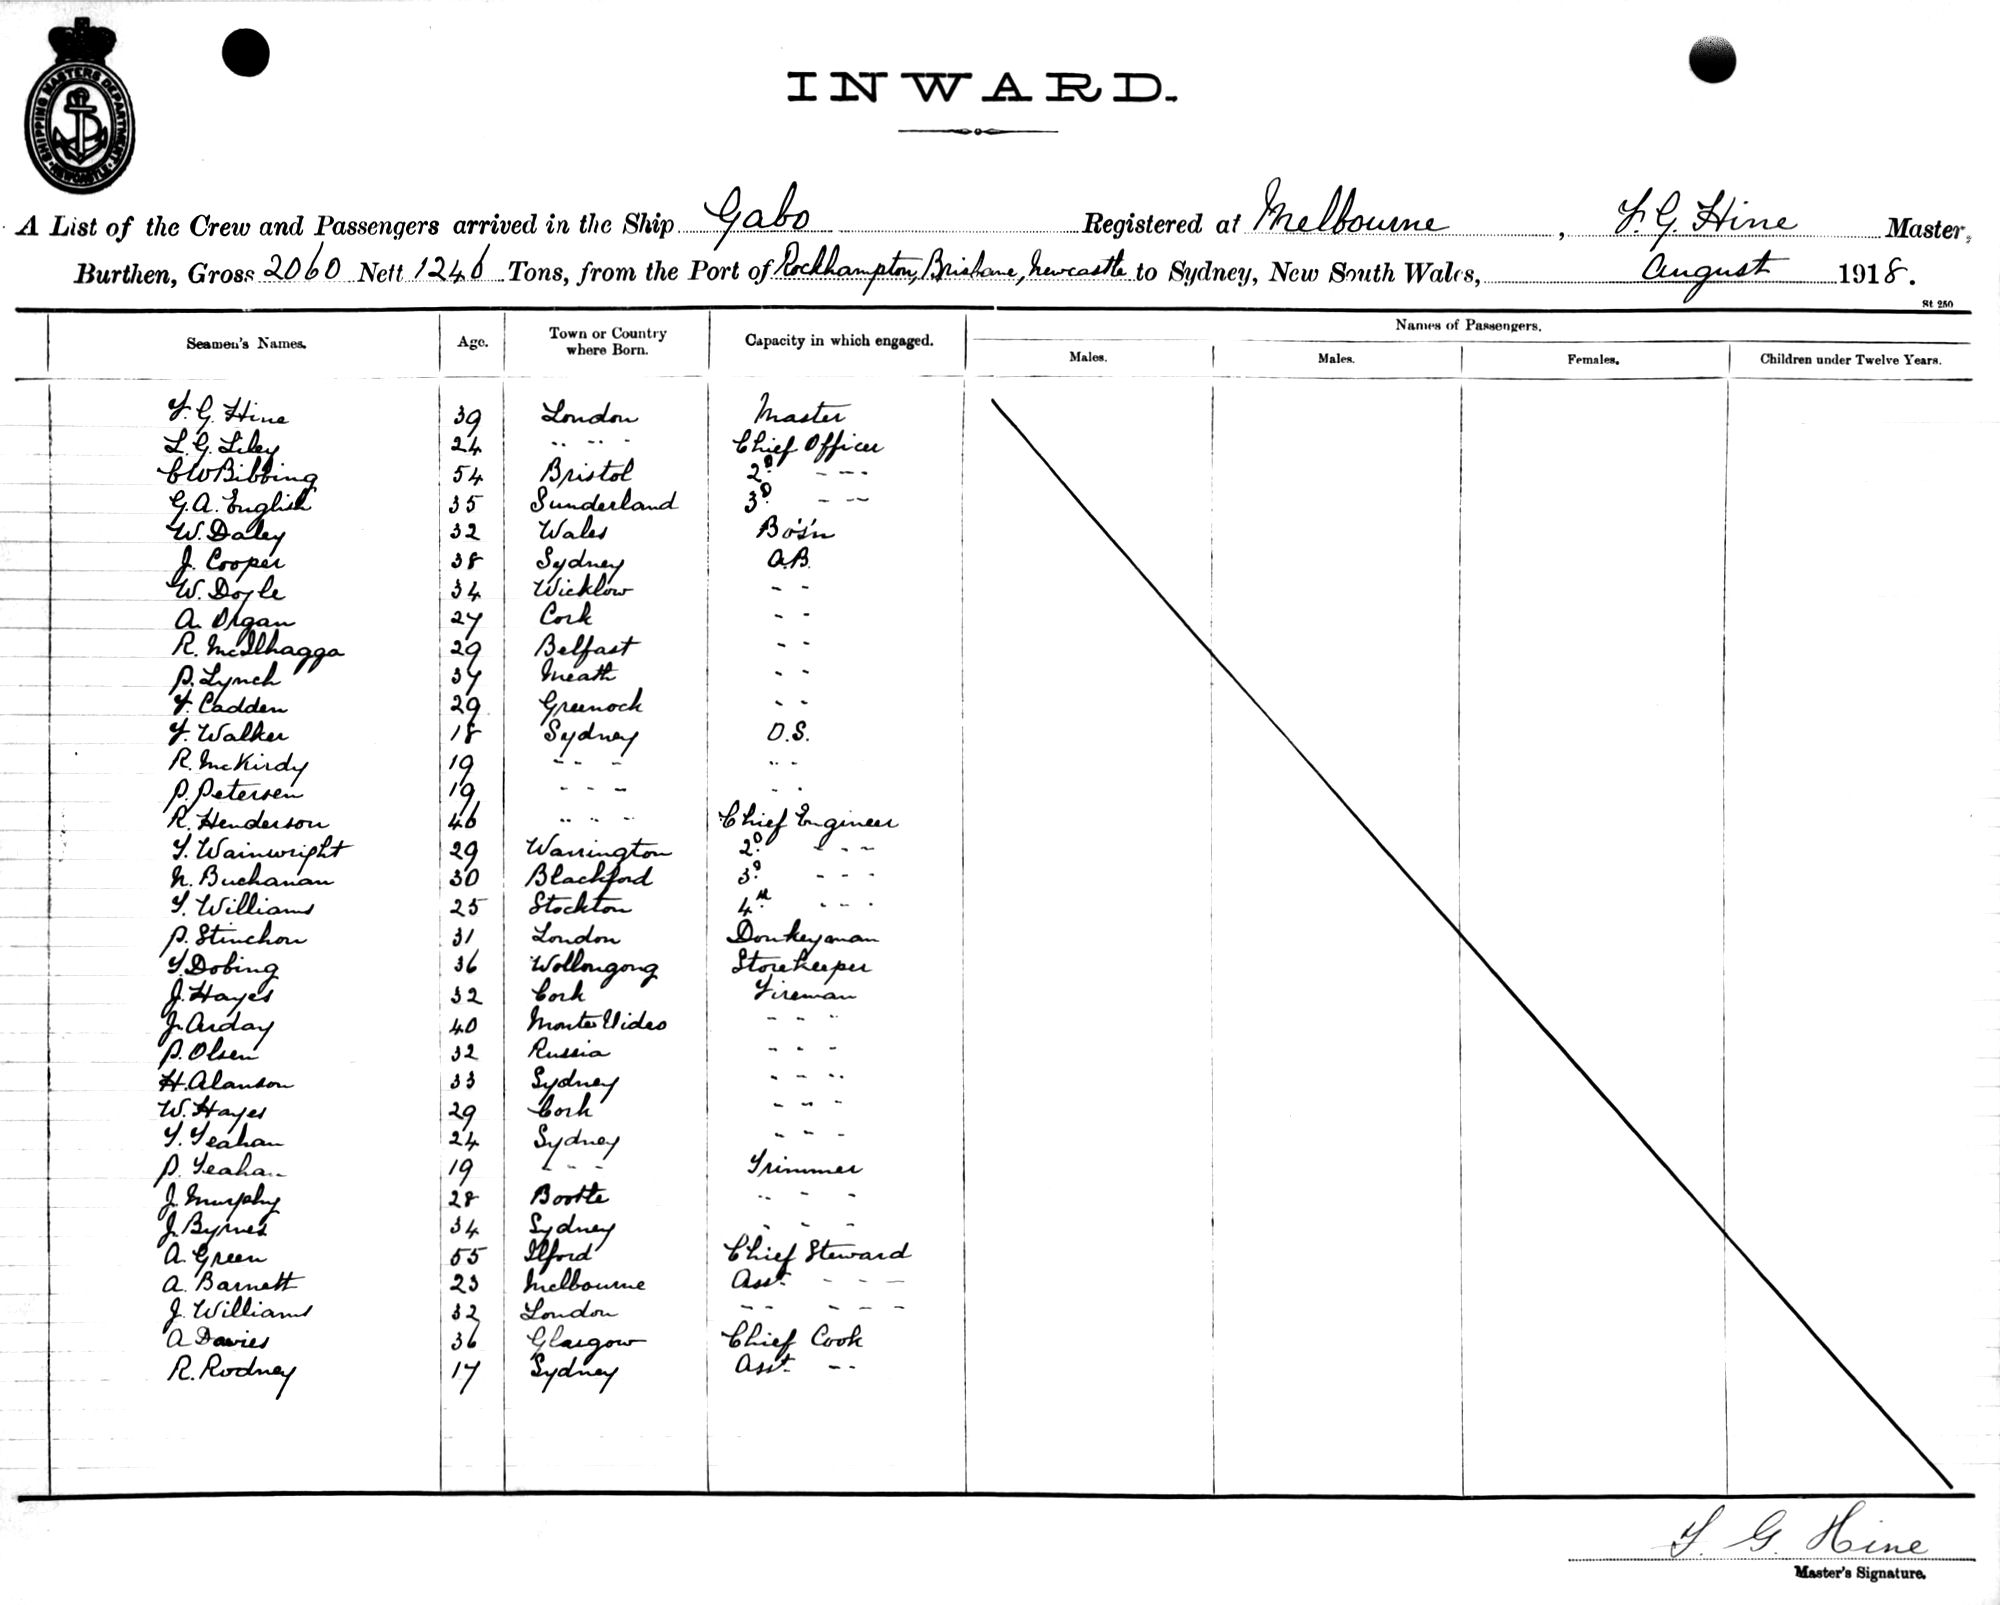 SHIPPING MASTERS DEPARTMENT
NEWCASTLE
INWARD.
A List of the Crew and Passengers arrived in the Ship Gabo Registered at Melbourne, F. G. Hine Master,
Burthen, Gross 2060 Nett 1246 Tons, from the Port of Rockhampton, Brisbane, Newcastle to Sydney, New South Wales, August 1918.
St 250
Seamen's Names. Age. Town or Country where Born. Capacity in which engaged. Names of Passengers.
Males. Males. Females. Children under Twelve Years.
F. G. Hine 39 London Master
L. G. Liley 24 " " " Chief Officer
C W Bibbing 54 Bristol 2D. - - -
G. A. English 35 Sunderland 3D. - - -
W. Daley 32 Wales Bo's'n
J. Cooper 38 Sydney A.B.
W. Doyle 34 Wicklow - -
A. Organ 27 Cork - -
R. McIlhagga 29 Belfast - -
P. Lynch 37 Meath - -
F. Cadden 29 Greenock - -
F. Walker 18 Sydney O.S.
R. McKirdy 19 - - - " -
P. Petersen 19 - - - - -
R. Henderson 46 " " - Chief Engineer
T. Wainwright 29 Warrington 2D. - - -
N. Buchanan 30 Blackford 3D. - - -
T. Williams 25 Stockton 4th - - -
P. Stinchon 31 London Donkeyman
T. Dobing 36 Wollongong Storekeeper
J. Hayes 32 Cork Fireman
J. Arday 40 Monte Video - - -
P. Olsen 32 Russia - - -
H. Alanson 33 Sydney - - - -
W. Hayes 29 Cork - - -
T. Yeahan 24 Sydney - - -
P. Yeahan 19 - - - Trimmer
J. Murphy 28 Bootle " - -
J. Byrnes 34 Sydney - - -
A. Green 55 Ilford Chief Steward
A. Barnett 23 Melbourne Asst. - - -
J. Williams 32 London - - - - -
A Davies 36 Glasgow Chief Cook
R. Rodney 17 Sydney Asst. - -
F. G. Hine
Master's Signature.